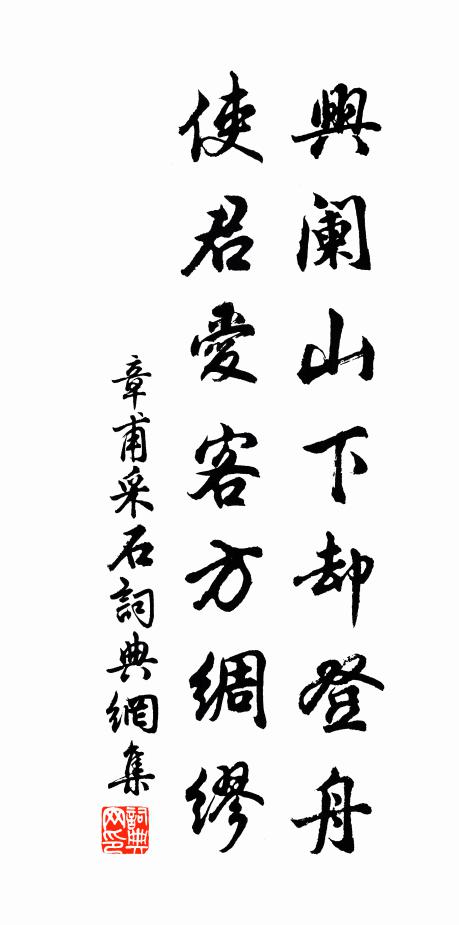 興阑山下却登舟
使君愛客方綢繆
章甫采石詞典網集
詞典网印